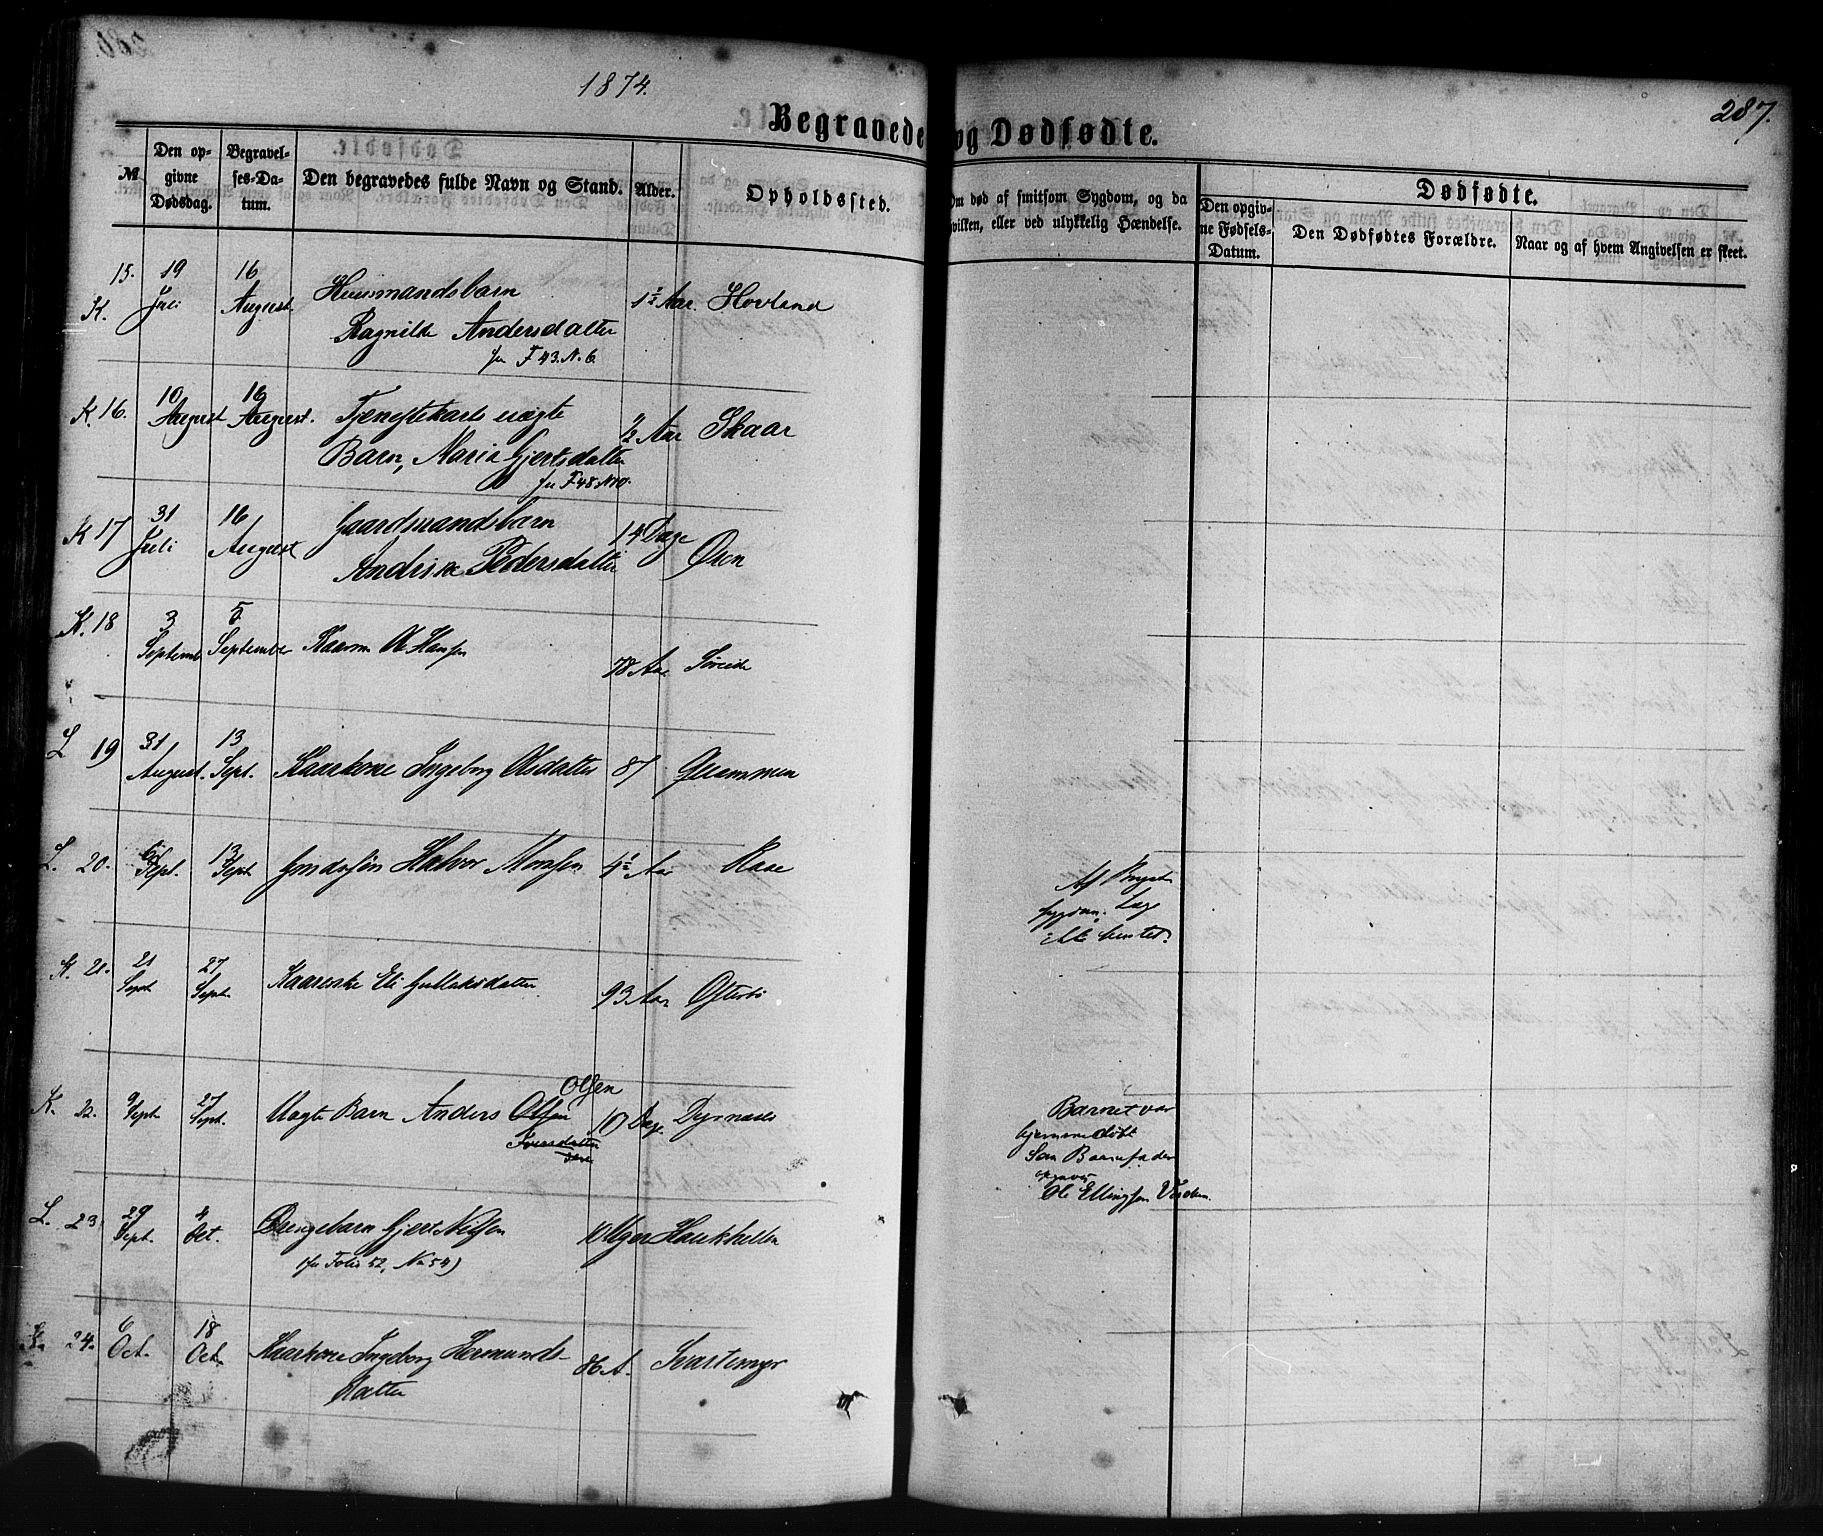 1874.
287.
Begravede og Dødfødte.
№
Den opgivne Dødsdag.
Begravelses-Datum.
Den begravedes fulde Navn og Stand.
Alder.
Opholdssted.
Om død af smitsom Sygdom, og da
hvilken, eller ved ulykkelig Hændelse.
Dødfødte.
Den opgivne Fødsels-Datum.
Den Dødfødtes Forældre.
Naar og af hvem Angivelsen er skeet.
K. 15. 19 Juli 16 August. Huusmandsbarn 1½ Aar. Hovland
Ragnilde Andersdatter
F 43. N. 6.
K 16. 10 August 16 August. Tjenestekarls uægte ½ Aar Skaar
Barn, Maria Gjertsdatter
F 48
K 17 31 Juli 16 August Gaardmandsbarn 14 Dage Osen
Pedersdatter
K. 18 3 Septemb 5 September Kaarm Ole Hansen 78 Aar Søreide
L 19 31 August. 13 Sept. Kaarkone Ingeborg Olsdatter 87 Qvammen
L. 20. 6 Sept. 13 Sept Halvor Monsen 4½ Aar Raae
Af Bryst
sygdom. Læge
ikke hentet.
K. 21. 21 Sept 27 Sept. Eli Gullaksdatter 93 Aar Ofterbø
K. 22. 9 Sept 27 Sept. Uægte Barn Anders Olsen Olsen 10 Dag. Dyrnæsli
Iversdatter
Barnet var
hjemmedøbt
Som Barnefader
opgaves
Ole Ellingsen
L. 23. 29 Sept. 4 Oct. Drengebarn Gjert Nilsen 10 Uger Haukhellen
(fr Folio 52, No 54)
24. 6 Oct. 18 Oct. Kaarkone Ingeborg Hermunds- 86 A. Svartemyr
datter